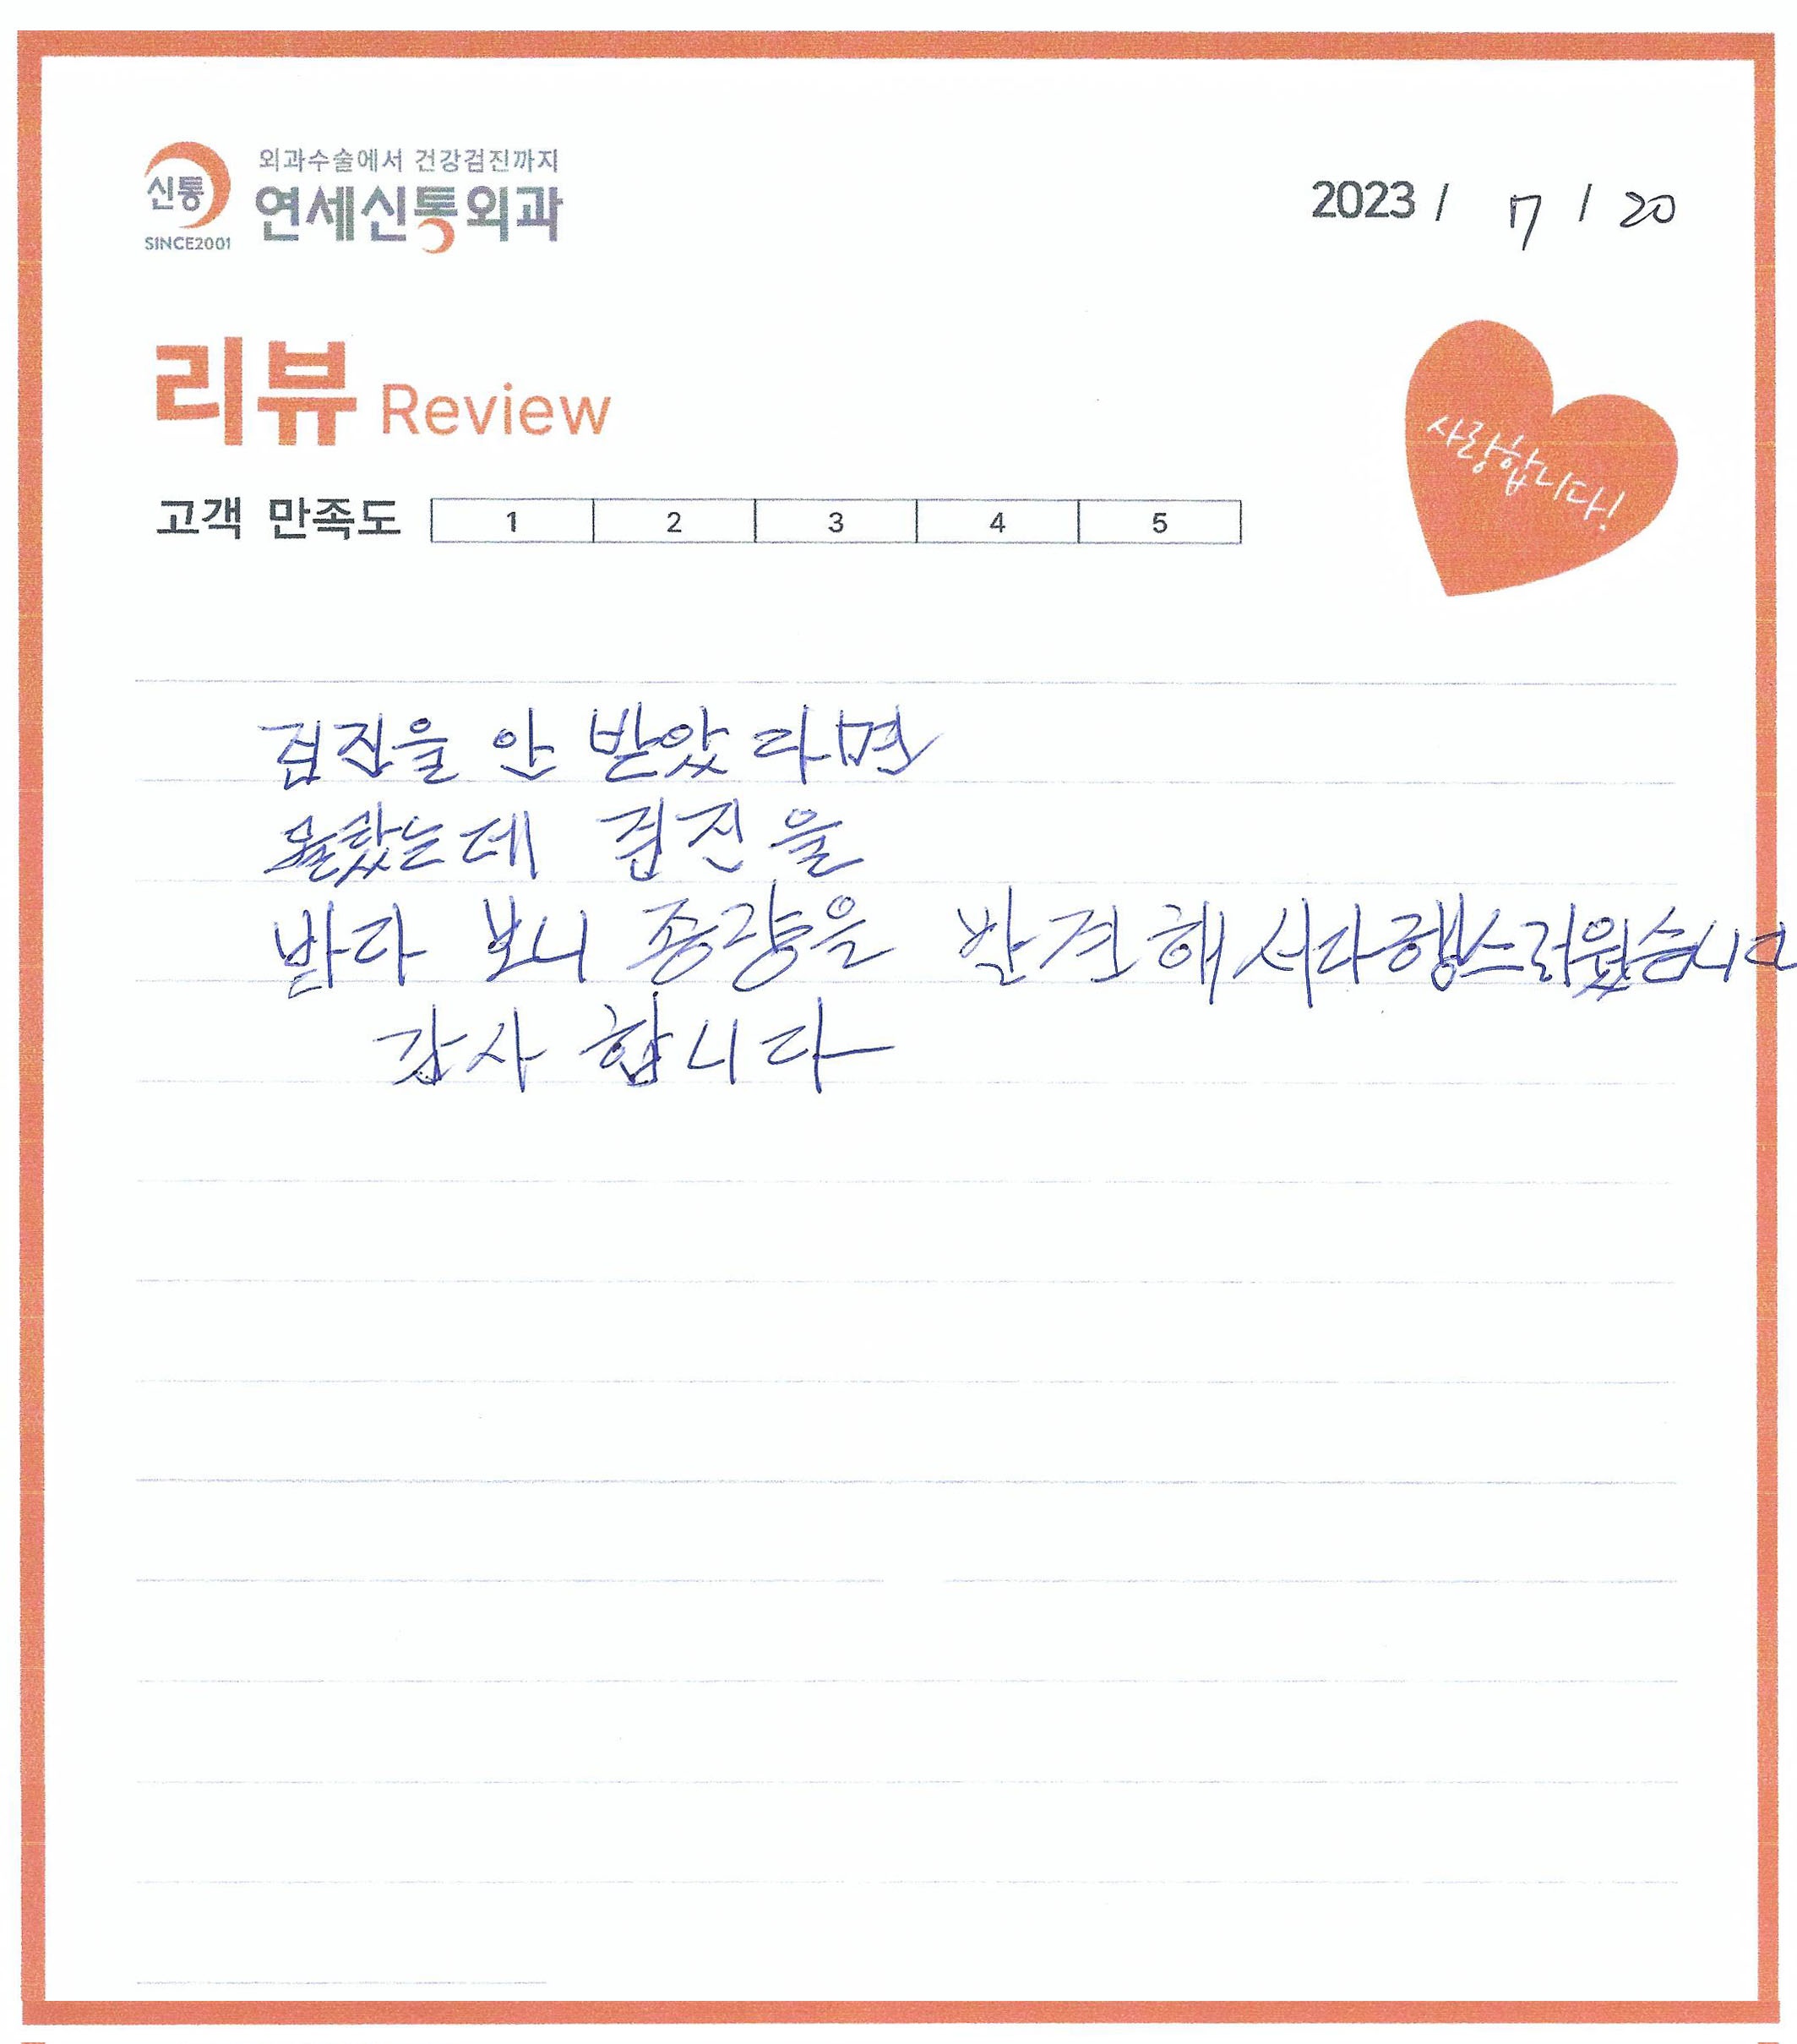 신통
SINCE2001
외과수술에서 건강검진까지
연세신통외과
2023 / 7 / 20
리뷰 Review
사랑합니다!
고객 만족도 1 2 3 4 5
검진을 안 받았다면
몰랐는데 검진을
받다 보니 종양을 발견해서다행스러웠습니다
감사 합니다